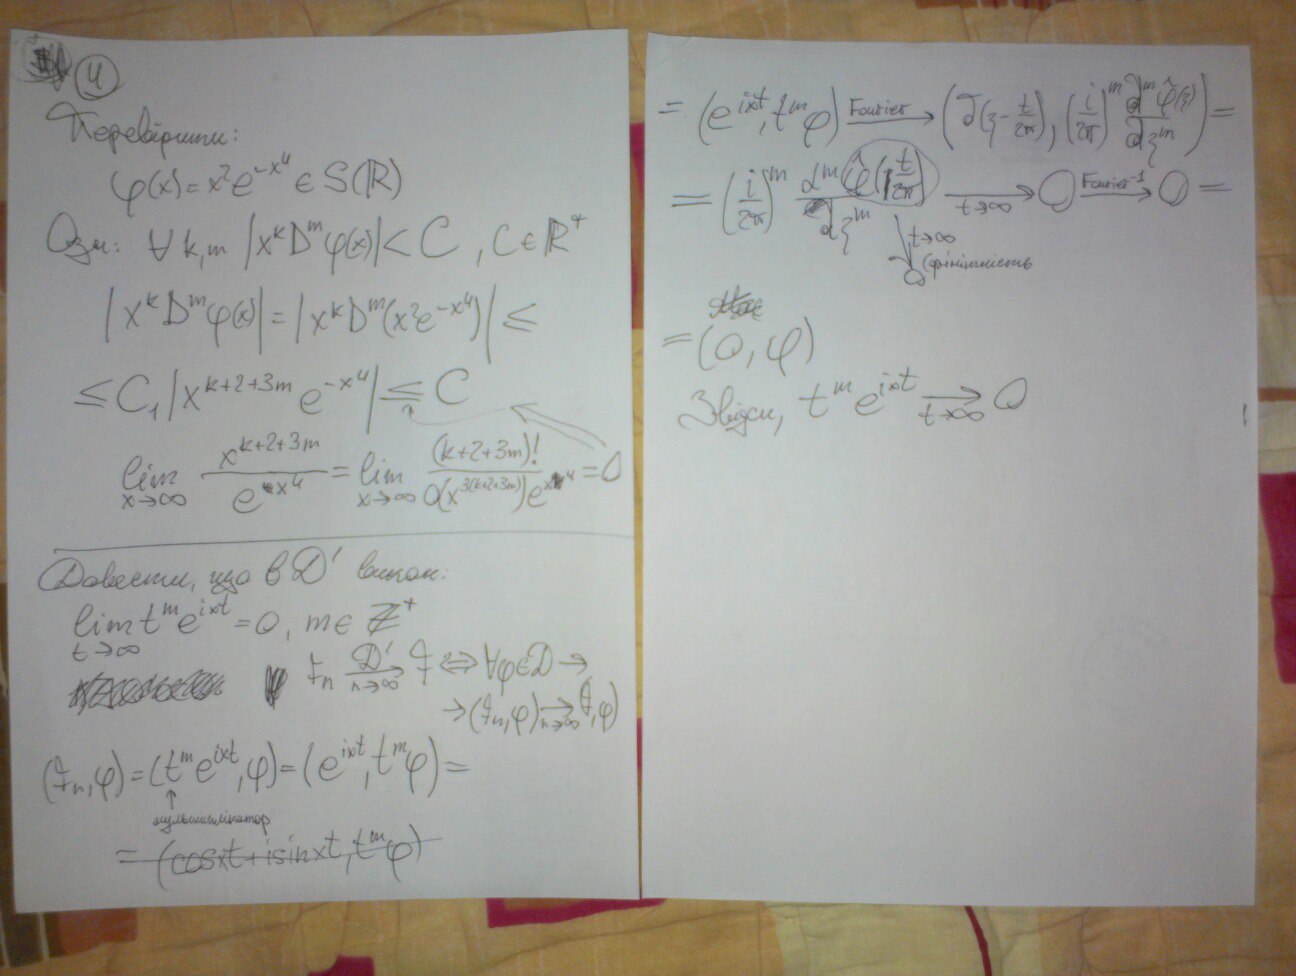 4
Перевірити:
φ(x) = x²e^{-x⁴} ∈ S(ℝ)
∀ k,m |x^k D^m φ(x)| < C, C ∈ ℝ⁺
|x^k D^m φ(x)| = |x^k D^m (x²e^{-x⁴})| ≤
≤ C₁ |x^{k+2+3m} e^{-x⁴}| ≤ C
lim_{x→∞} x^{k+2+3m} / e^{x⁴} = lim_{x→∞} (k+2+3m)! / O(x^{3(k+2+3m)}) e^{x⁴} = 0
Довести, що в D' викон.:
lim_{t→∞} t^m e^{ixt} = 0, m ∈ ℤ⁺
f_n →^{D'}_{n→∞} f ⇔ ∀φ∈D →
→ (f_n, φ) →_{n→∞} (f, φ)
(f_n, φ) = (t^m e^{ixt}, φ) = (e^{ixt}, t^m φ) =
↑
мультиплікатор
= (cosxt + isinxt, t^m φ)
= (e^{ixt}, t^m φ) →^{Fourier} (δ(ξ - t/2π), (i/2π)^m d^m φ̂(ξ)/dξ^m) =
= (i/2π)^m d^m φ̂(t/2π)/dξ^m →_{t→∞} 0 →^{Fourier⁻¹} 0 =
↓ t→∞
0 (фінітність
= (0, φ)
Звідси, t^m e^{ixt} →_{t→∞} 0